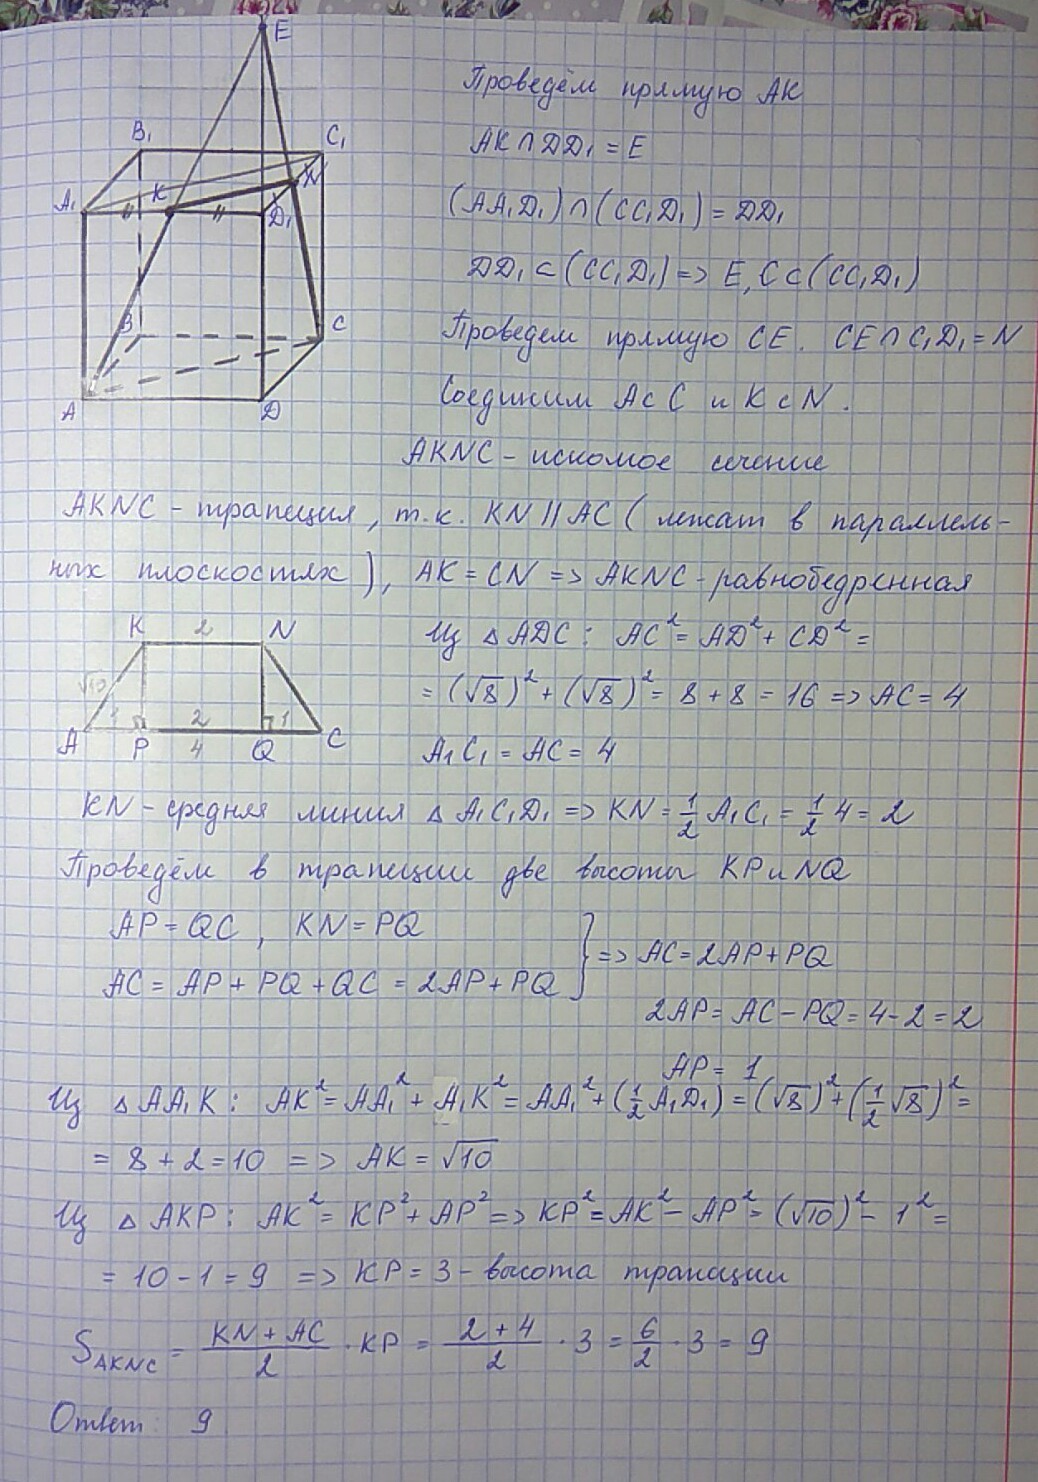 E
B₁
C₁
A₁
K
N
D₁
B
C
A
D
Проведём прямую AK
AK ∩ DD₁ = E
(AA₁D₁) ∩ (CC₁D₁) = DD₁
DD₁ ⊂ (CC₁D₁) => E, C ⊂ (CC₁D₁)
Проведем прямую CE. CE ∩ C₁D₁ = N
Соединим A с C и K с N.
AKNC - искомое сечение
AKNC - трапеция, т.к. KN || AC (лежат в параллель-
ных плоскостях), AK = CN => AKNC - равнобедренная
K 2 N
√10
1 2 1
A P 4 Q C
Из △ADC: AC² = AD² + CD² =
= (√8)² + (√8)² = 8 + 8 = 16 => AC = 4
A₁C₁ = AC = 4
KN - средняя линия △A₁C₁D₁ => KN = 1/2 A₁C₁ = 1/2 4 = 2
Проведём в трапеции две высоты KP и NQ
AP = QC, KN = PQ
AC = AP + PQ + QC = 2AP + PQ } => AC = 2AP + PQ
2AP = AC - PQ = 4 - 2 = 2
AP = 1
Из △AA₁K: AK² = AA₁² + A₁K² = AA₁² + (1/2 A₁D₁) = (√8)² + (1/2 √8)² =
= 8 + 2 = 10 => AK = √10
Из △AKP: AK² = KP² + AP² => KP² = AK² - AP² = (√10)² - 1² =
= 10 - 1 = 9 => KP = 3 - высота трапеции
S_AKNC = (KN + AC)/2 · KP = (2 + 4)/2 · 3 = 6/2 · 3 = 9
Ответ: 9